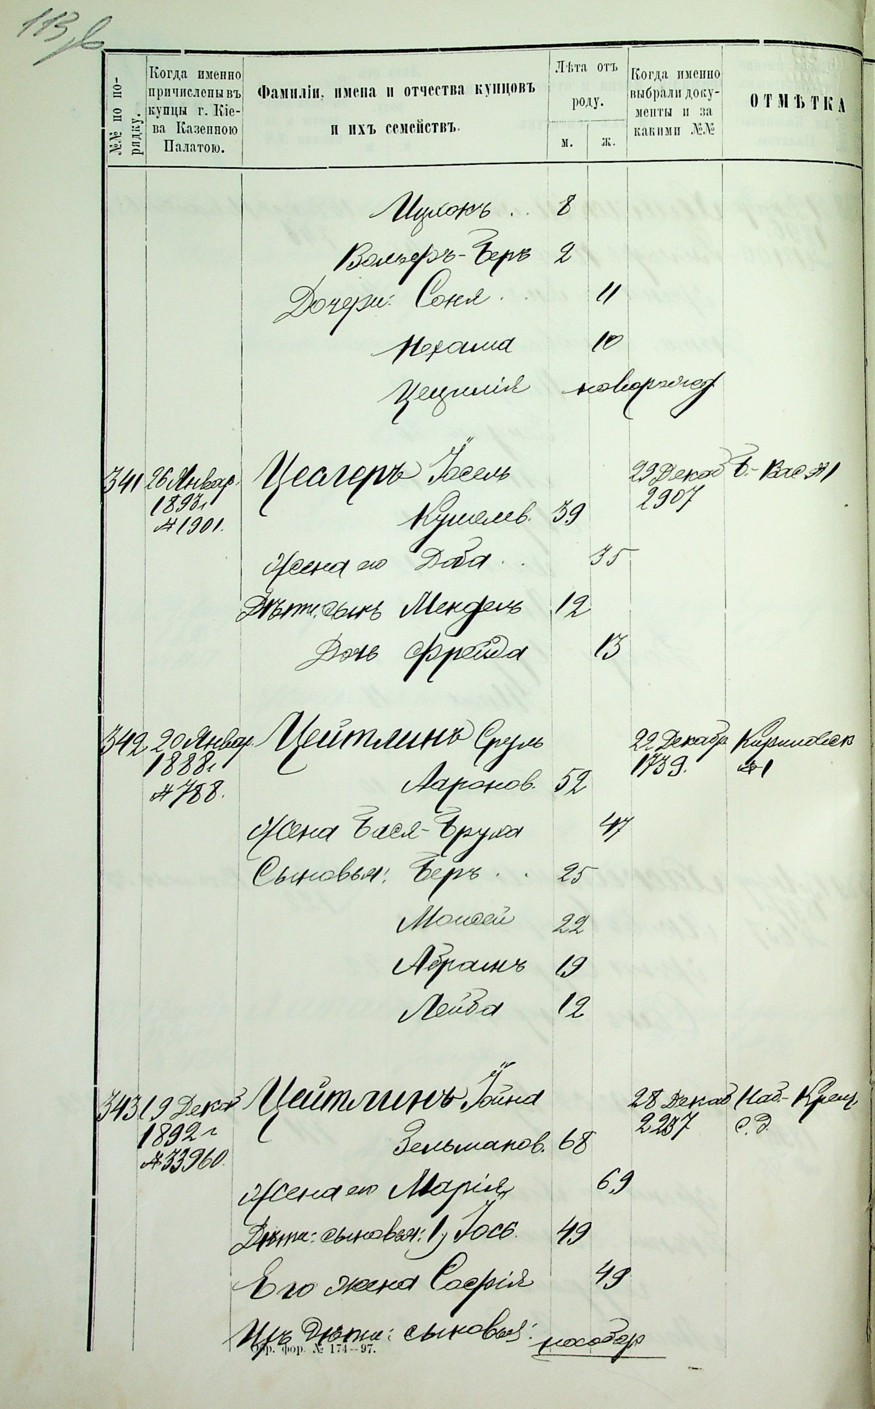 №№ по по-
рядку.
Когда именно
причислены въ
купцы г. Кіе-
ва Казенною
Палатою.
Фамиліи, имена и отчества купцовъ
и ихъ семействъ.
Лѣта отъ
роду.
м.
ж.
Когда именно
выбрали доку-
менты и за
какими №№
ОТМѢТКА
Ицхокъ . . 8
Вольфъ-Беръ 2
Дочери: Соня . . 11
Нехама 10
Цецилія новорожд
341 26 Январ. Цеагеръ Іосель 29 Декаб Б.-Вас №1
1893 г. 2907
№ 1901. Кушелев. 39
Жена его Доба . . 35
Дѣти: сынъ Мендель 12
Дочь Фрейда 13
342 20 Январ. Цейтлинъ Сруль 22 Декабр Кириловск
1888 г. 1739. №1
№ 788. Ааронов. 52
Жена Бася-Бруха 47
Сыновья: Беръ . . 25
Моисей 22
Абрамъ 19
Лейба 12
343 19 Декаб Цейтлинъ Іойна 28 Декаб Наб-Крещ
1892 г. 2237 с. д.
№ 33960. Зельманов. 68
Жена его Марія 69
Дѣти: сыновья: 1) Іось 49
Его жена Софія 49
Ихъ Дѣти: сыновья:
Обр. фор. № 174—97.